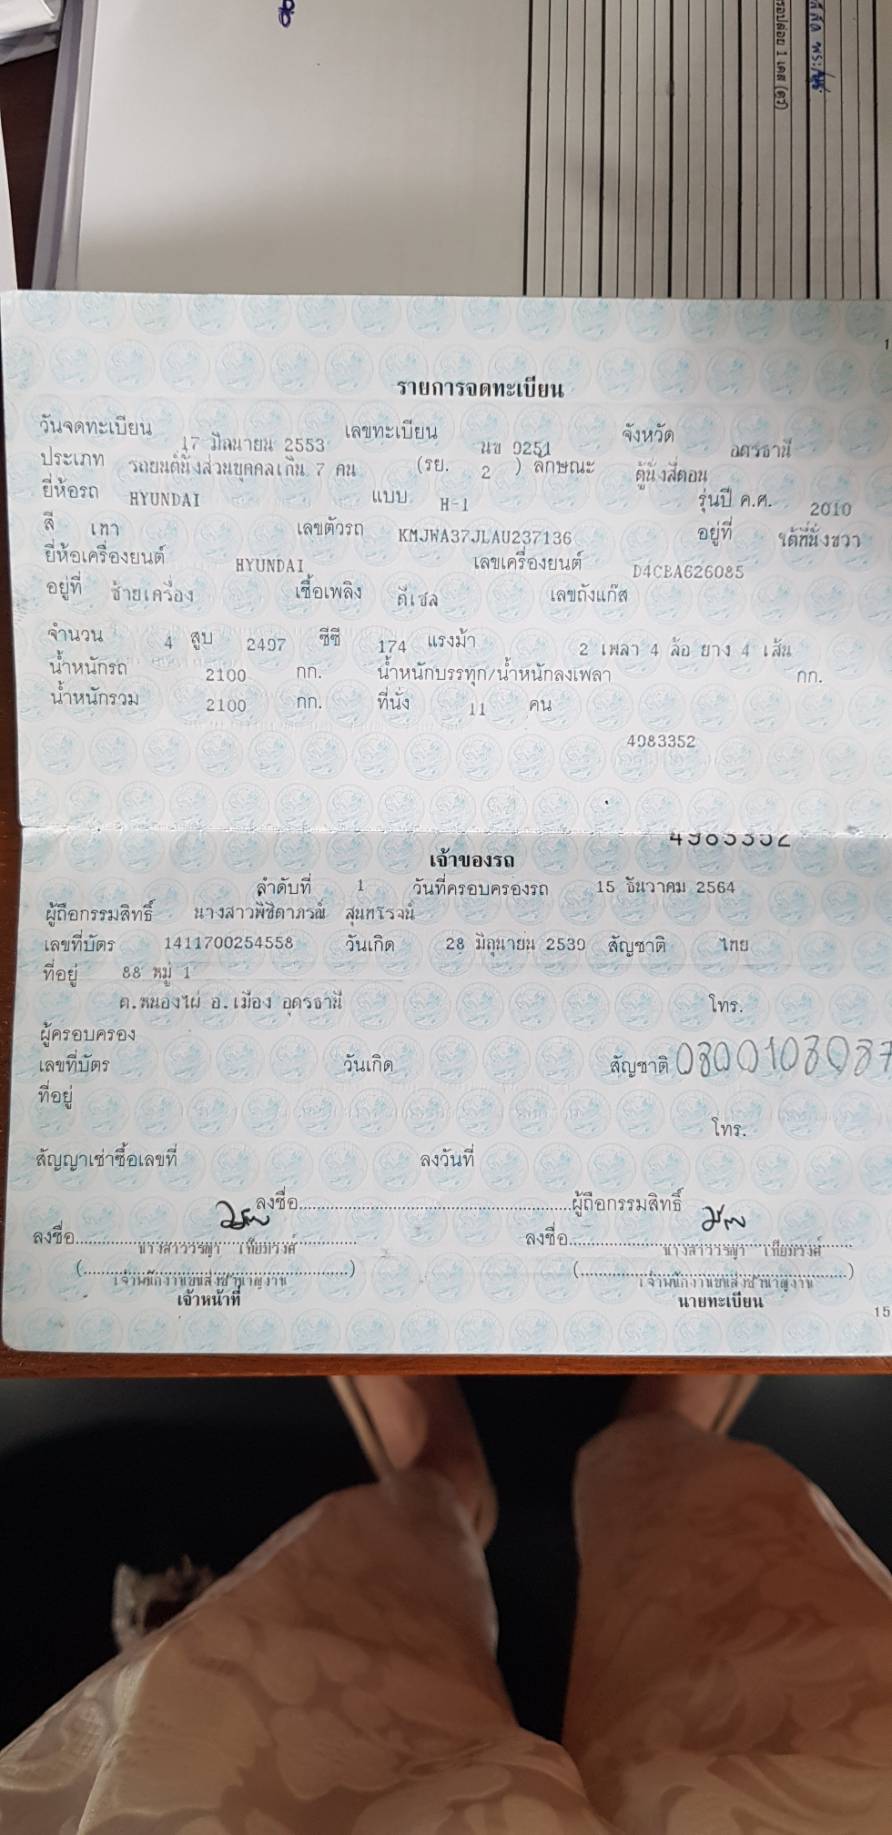 รอปล่อย 1 เคส (ตู้)
1
รายการจดทะเบียน
วันจดทะเบียน 17 มิถุนายน 2553 เลขทะเบียน นข 9251 จังหวัด อุดรธานี
ประเภท รถยนต์นั่งส่วนบุคคลเกิน 7 คน (รย. 2 ) ลักษณะ ตู้นั่งสี่ตอน
ยี่ห้อรถ HYUNDAI แบบ H-1 รุ่นปี ค.ศ. 2010
สี เทา เลขตัวรถ KMJWA37JLAU237136 อยู่ที่ ใต้ที่นั่งขวา
ยี่ห้อเครื่องยนต์ HYUNDAI เลขเครื่องยนต์ D4CBA626085
อยู่ที่ ซ้ายเครื่อง เชื้อเพลิง ดีเซล เลขถังแก๊ส
จำนวน 4 สูบ 2497 ซีซี 174 แรงม้า 2 เพลา 4 ล้อ ยาง 4 เส้น
น้ำหนักรถ 2100 กก. น้ำหนักบรรทุก/น้ำหนักลงเพลา กก.
น้ำหนักรวม 2100 กก. ที่นั่ง 11 คน
4983352
4983352
เจ้าของรถ
ลำดับที่ 1 วันที่ครอบครองรถ 15 ธันวาคม 2564
ผู้ถือกรรมสิทธิ์ นางสาวพิชิดาภรณ์ สุนทโรจน์
เลขที่บัตร 1411700254558 วันเกิด 28 มิถุนายน 2539 สัญชาติ ไทย
ที่อยู่ 88 หมู่ 1
ต.หนองไผ่ อ.เมือง อุดรธานี โทร.
ผู้ครอบครอง
เลขที่บัตร วันเกิด สัญชาติ 0800103087
ที่อยู่
โทร.
สัญญาเช่าซื้อเลขที่ ลงวันที่
ลงชื่อ ผู้ถือกรรมสิทธิ์
ลงชื่อ ลงชื่อ
เจ้าพนักงานขนส่งชำนาญงาน เจ้าพนักงานขนส่งชำนาญงาน
เจ้าหน้าที่ นายทะเบียน
15